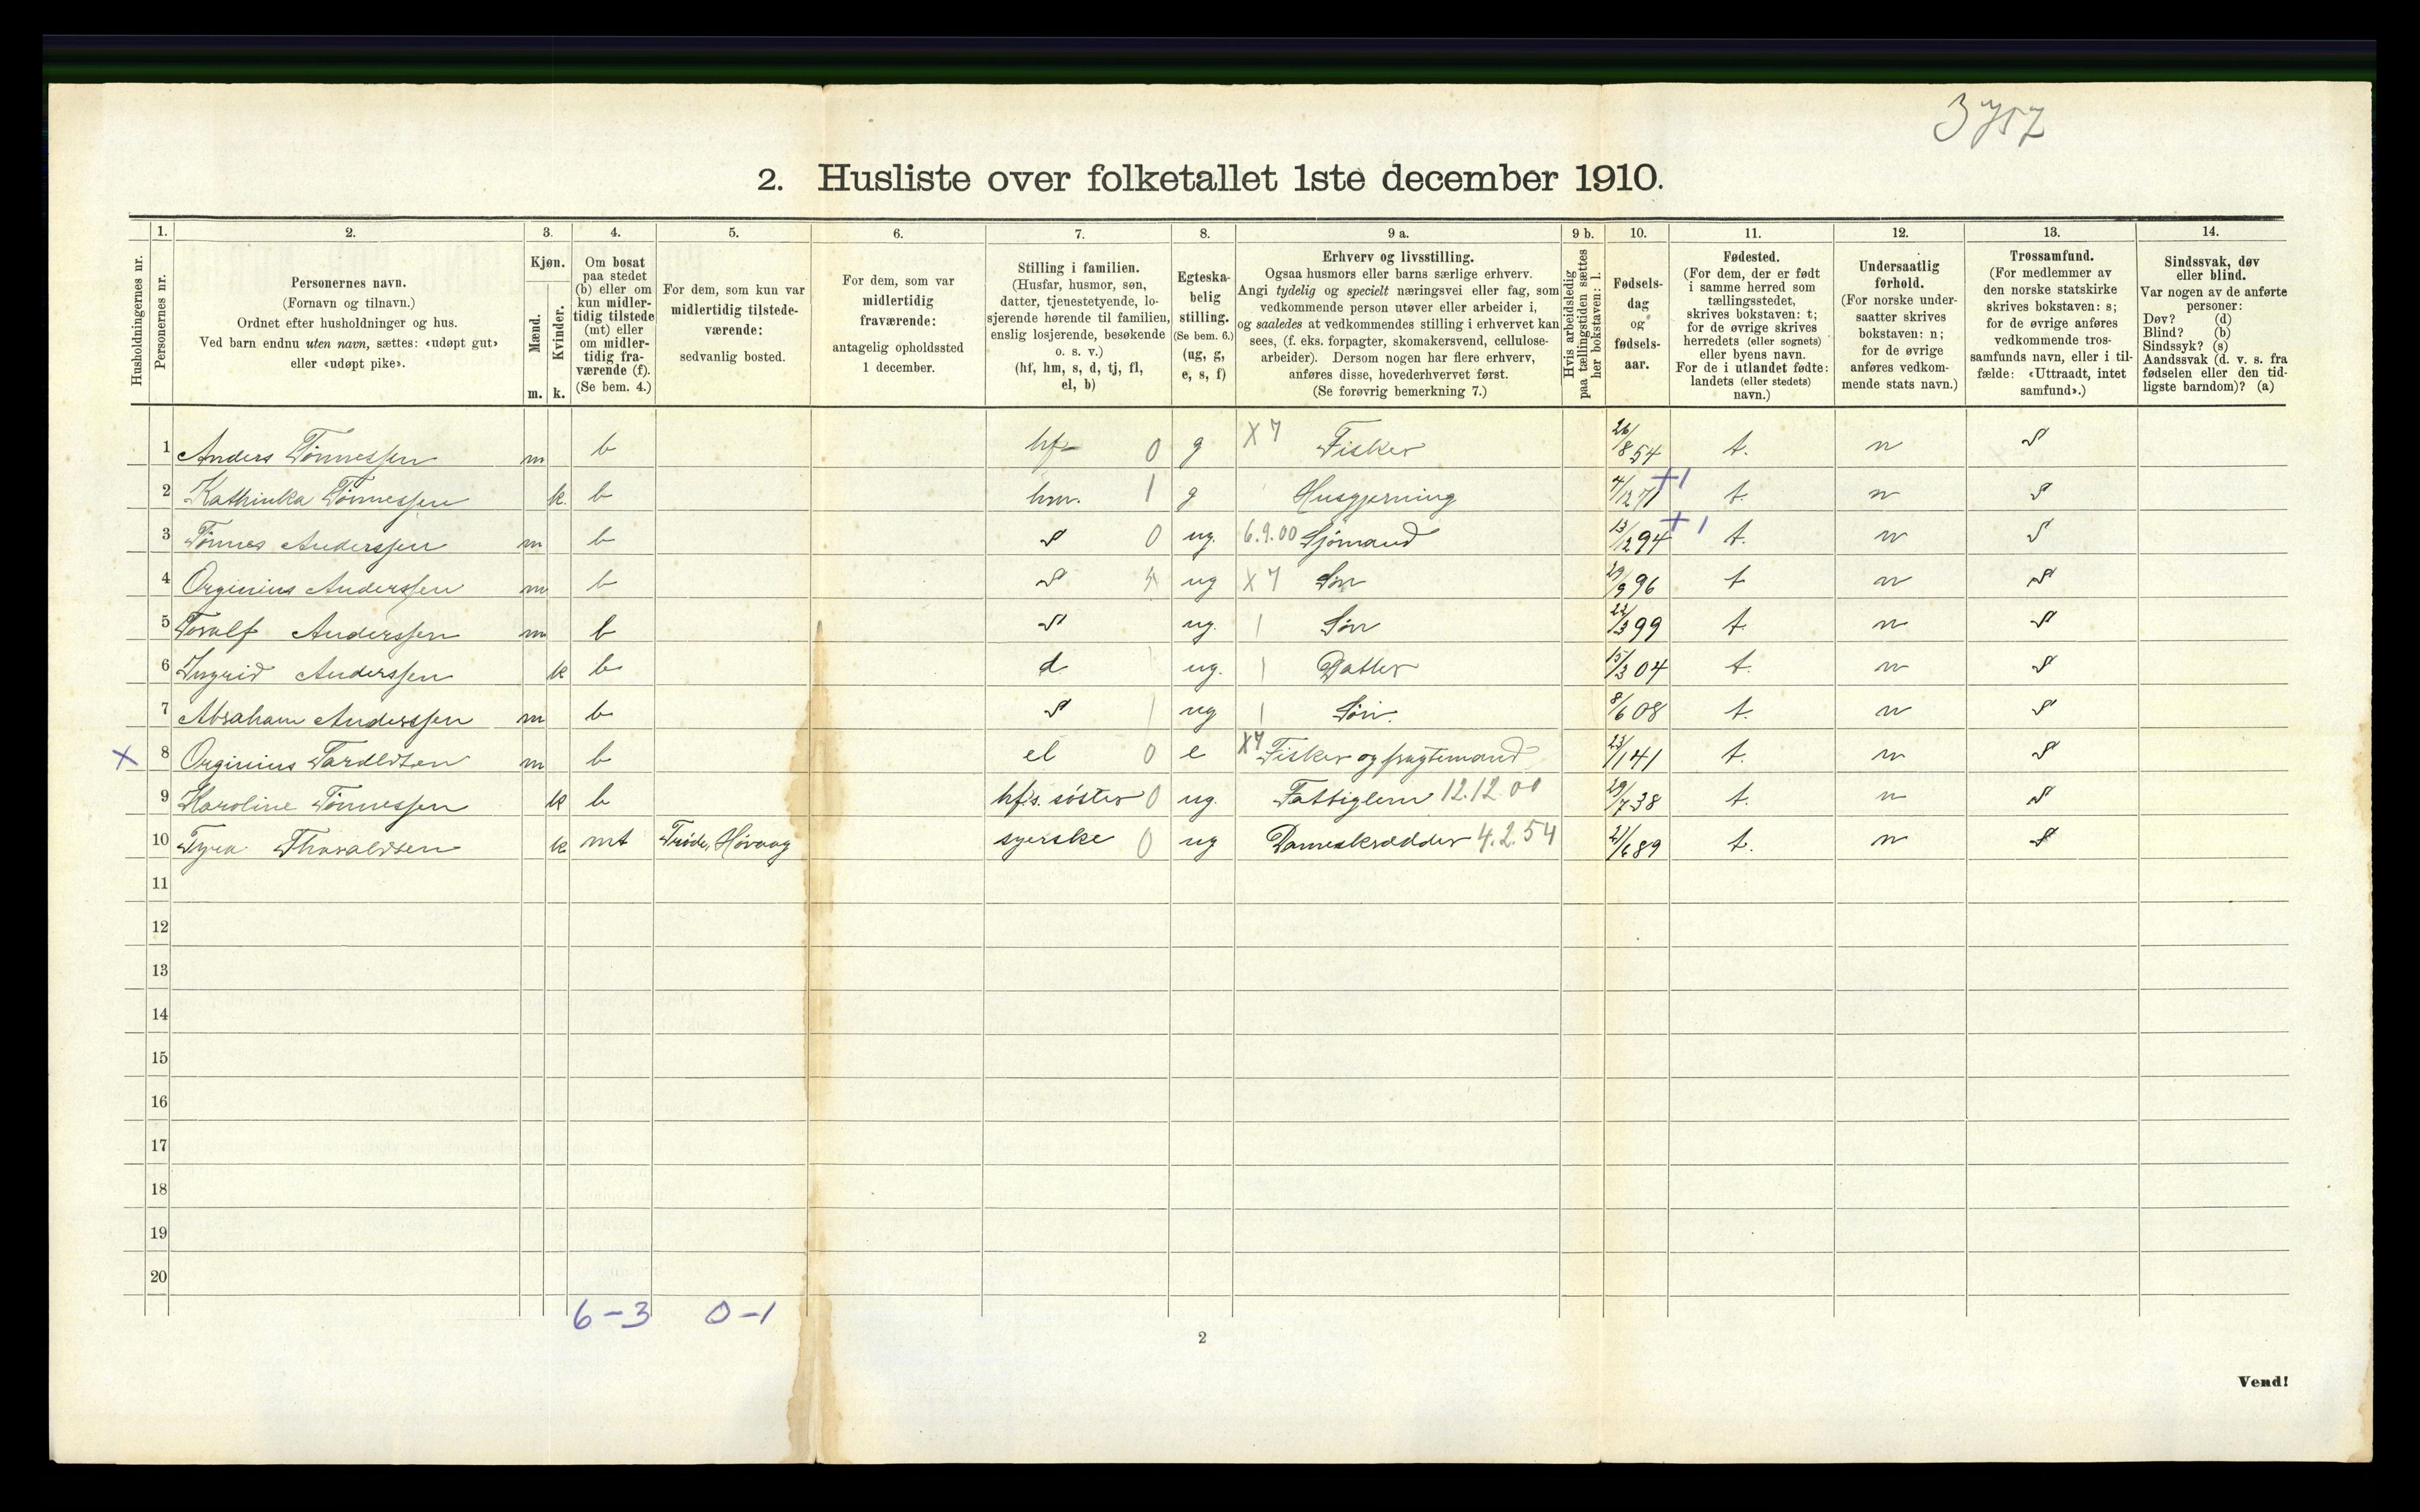 3757
2. Husliste over folketallet 1ste december 1910.
1. 2. 3. 4. 5. 6. 7. 8. 9 a. 9 b. 10. 11. 12. 13. 14.
Husholdningernes nr.
Personernes nr.
Personernes navn.
(Fornavn og tilnavn.)
Ordnet efter husholdninger og hus.
Ved barn endnu uten navn, sættes: «udøpt gut»
eller «udøpt pike».
Kjøn.
Mænd.
Kvinder.
m. k.
Om bosat
paa stedet
(b) eller om
kun midler-
tidig tilstede
(mt) eller
om midler-
tidig fra-
værende (f).
(Se bem. 4.)
For dem, som kun var
midlertidig tilstede-
værende:
sedvanlig bosted.
For dem, som var
midlertidig
fraværende:
antagelig opholdssted
1 december.
Stilling i familien.
(Husfar, husmor, søn,
datter, tjenestetyende, lo-
sjerende hørende til familien,
enslig losjerende, besøkende
o. s. v.)
(hf, hm, s, d, tj, fl,
el, b)
Egteska-
belig
stilling.
(Se bem. 6.)
(ug, g,
e, s, f)
Erhverv og livsstilling.
Ogsaa husmors eller barns særlige erhverv.
Angi tydelig og specielt næringsvei eller fag, som
vedkommende person utøver eller arbeider i,
og saaledes at vedkommendes stilling i erhvervet kan
sees, (f. eks. forpagter, skomakersvend, cellulose-
arbeider). Dersom nogen har flere erhverv,
anføres disse, hovederhvervet først.
(Se forøvrig bemerkning 7.)
Hvis arbeidsledig
paa tællingstiden sættes
her bokstaven: l.
Fødsels-
dag
og
fødsels-
aar.
Fødested.
(For dem, der er født
i samme herred som
tællingsstedet,
skrives bokstaven: t;
for de øvrige skrives
herredets (eller sognets)
eller byens navn.
For de i utlandet fødte:
landets (eller stedets)
navn.)
Undersaatlig
forhold.
(For norske under-
saatter skrives
bokstaven: n;
for de øvrige
anføres vedkom-
mende stats navn.)
Trossamfund.
(For medlemmer av
den norske statskirke
skrives bokstaven: s;
for de øvrige anføres
vedkommende tros-
samfunds navn, eller i til-
fælde: «Uttraadt, intet
samfund».)
Sindssvak, døv
eller blind.
Var nogen av de anførte
personer:
Døv? (d)
Blind? (b)
Sindssyk? (s)
Aandssvak (d. v. s. fra
fødselen eller den tid-
ligste barndom)? (a)
1 Anders Tönnessen m b hf 0 g X 7 Fisker 26/8 54 t. n s
2 Kathinka Tönnessen k. b hm. 1 g Husgjerning 4/12 71 +1 t. n s
3 Tönnes Anderssen m b s 0 ug. 6.9.00 Sjömand 13/12 94 +1 t. n s
4 Orginius Anderssen m b s ug X 7 Sön 29/9 96 t n s
5 Toralf Anderssen m b s ug. 1 Sön 22/3 99 t. n s
6 Ingrid Anderssen k b d ug. 1 Datter 15/3 04 t. n s
7 Abraham Anderssen m b s 1 ug 1 Sön. 8/6 08 t. n s
X 8 Orginius m b el 0 e X7 Fisker og 23/1 41 t. n s
9 Karoline Tönnessen k b hf's. söster 0 ug. Fattiglem 12.12.00 29/7 38 t. n s
10 Tyra Thoraldsen k mt Tröde, Hövaag syerske 0 ug Dameskrædder 4.2.54 21/6 89 t. n s
11
12
13
14
15
16
17
18
19
20
6 - 3 0 - 1
2
Vend!